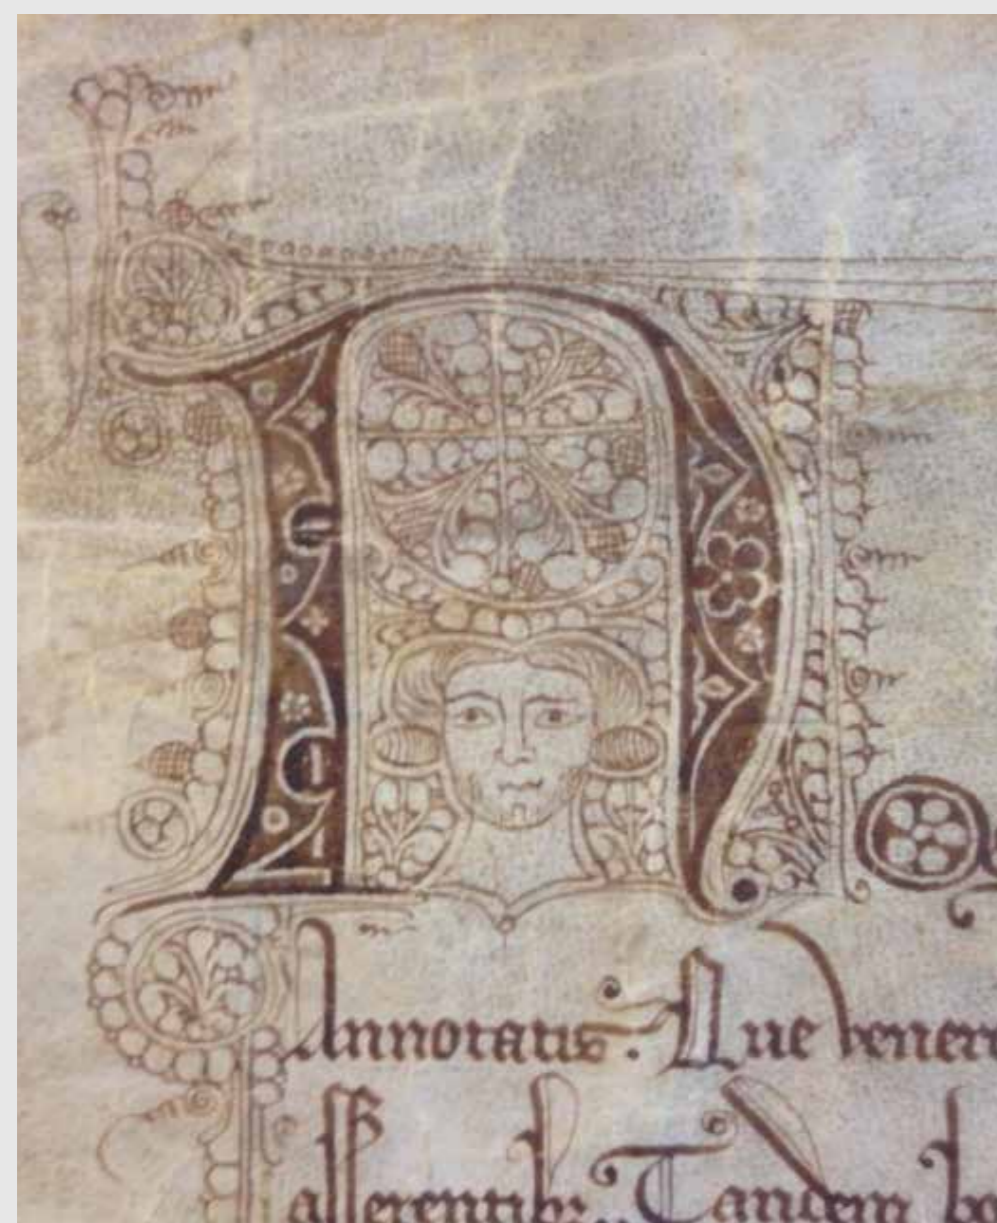 NO
Annotatis. Que vener
asserentibz. Tandem bo